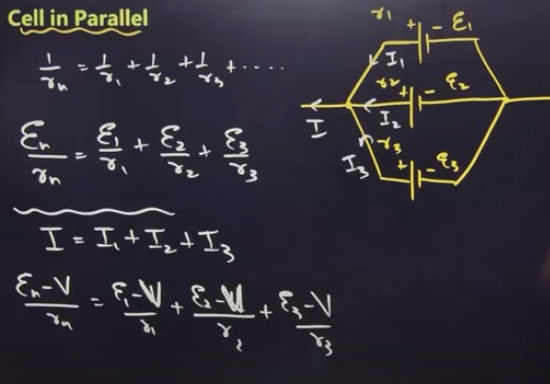 Cell in Parallel
1/rn = 1/r1 + 1/r2 + 1/r3 + .....
εn/rn = ε1/r1 + ε2/r2 + ε3/r3
I = I1 + I2 + I3
εn-V/rn = ε1-V/r1 + ε2-V/r2 + ε3-V/r3
r1 + - ε1
I1
r2 + - ε2
I I2
r3
I3 + - ε3